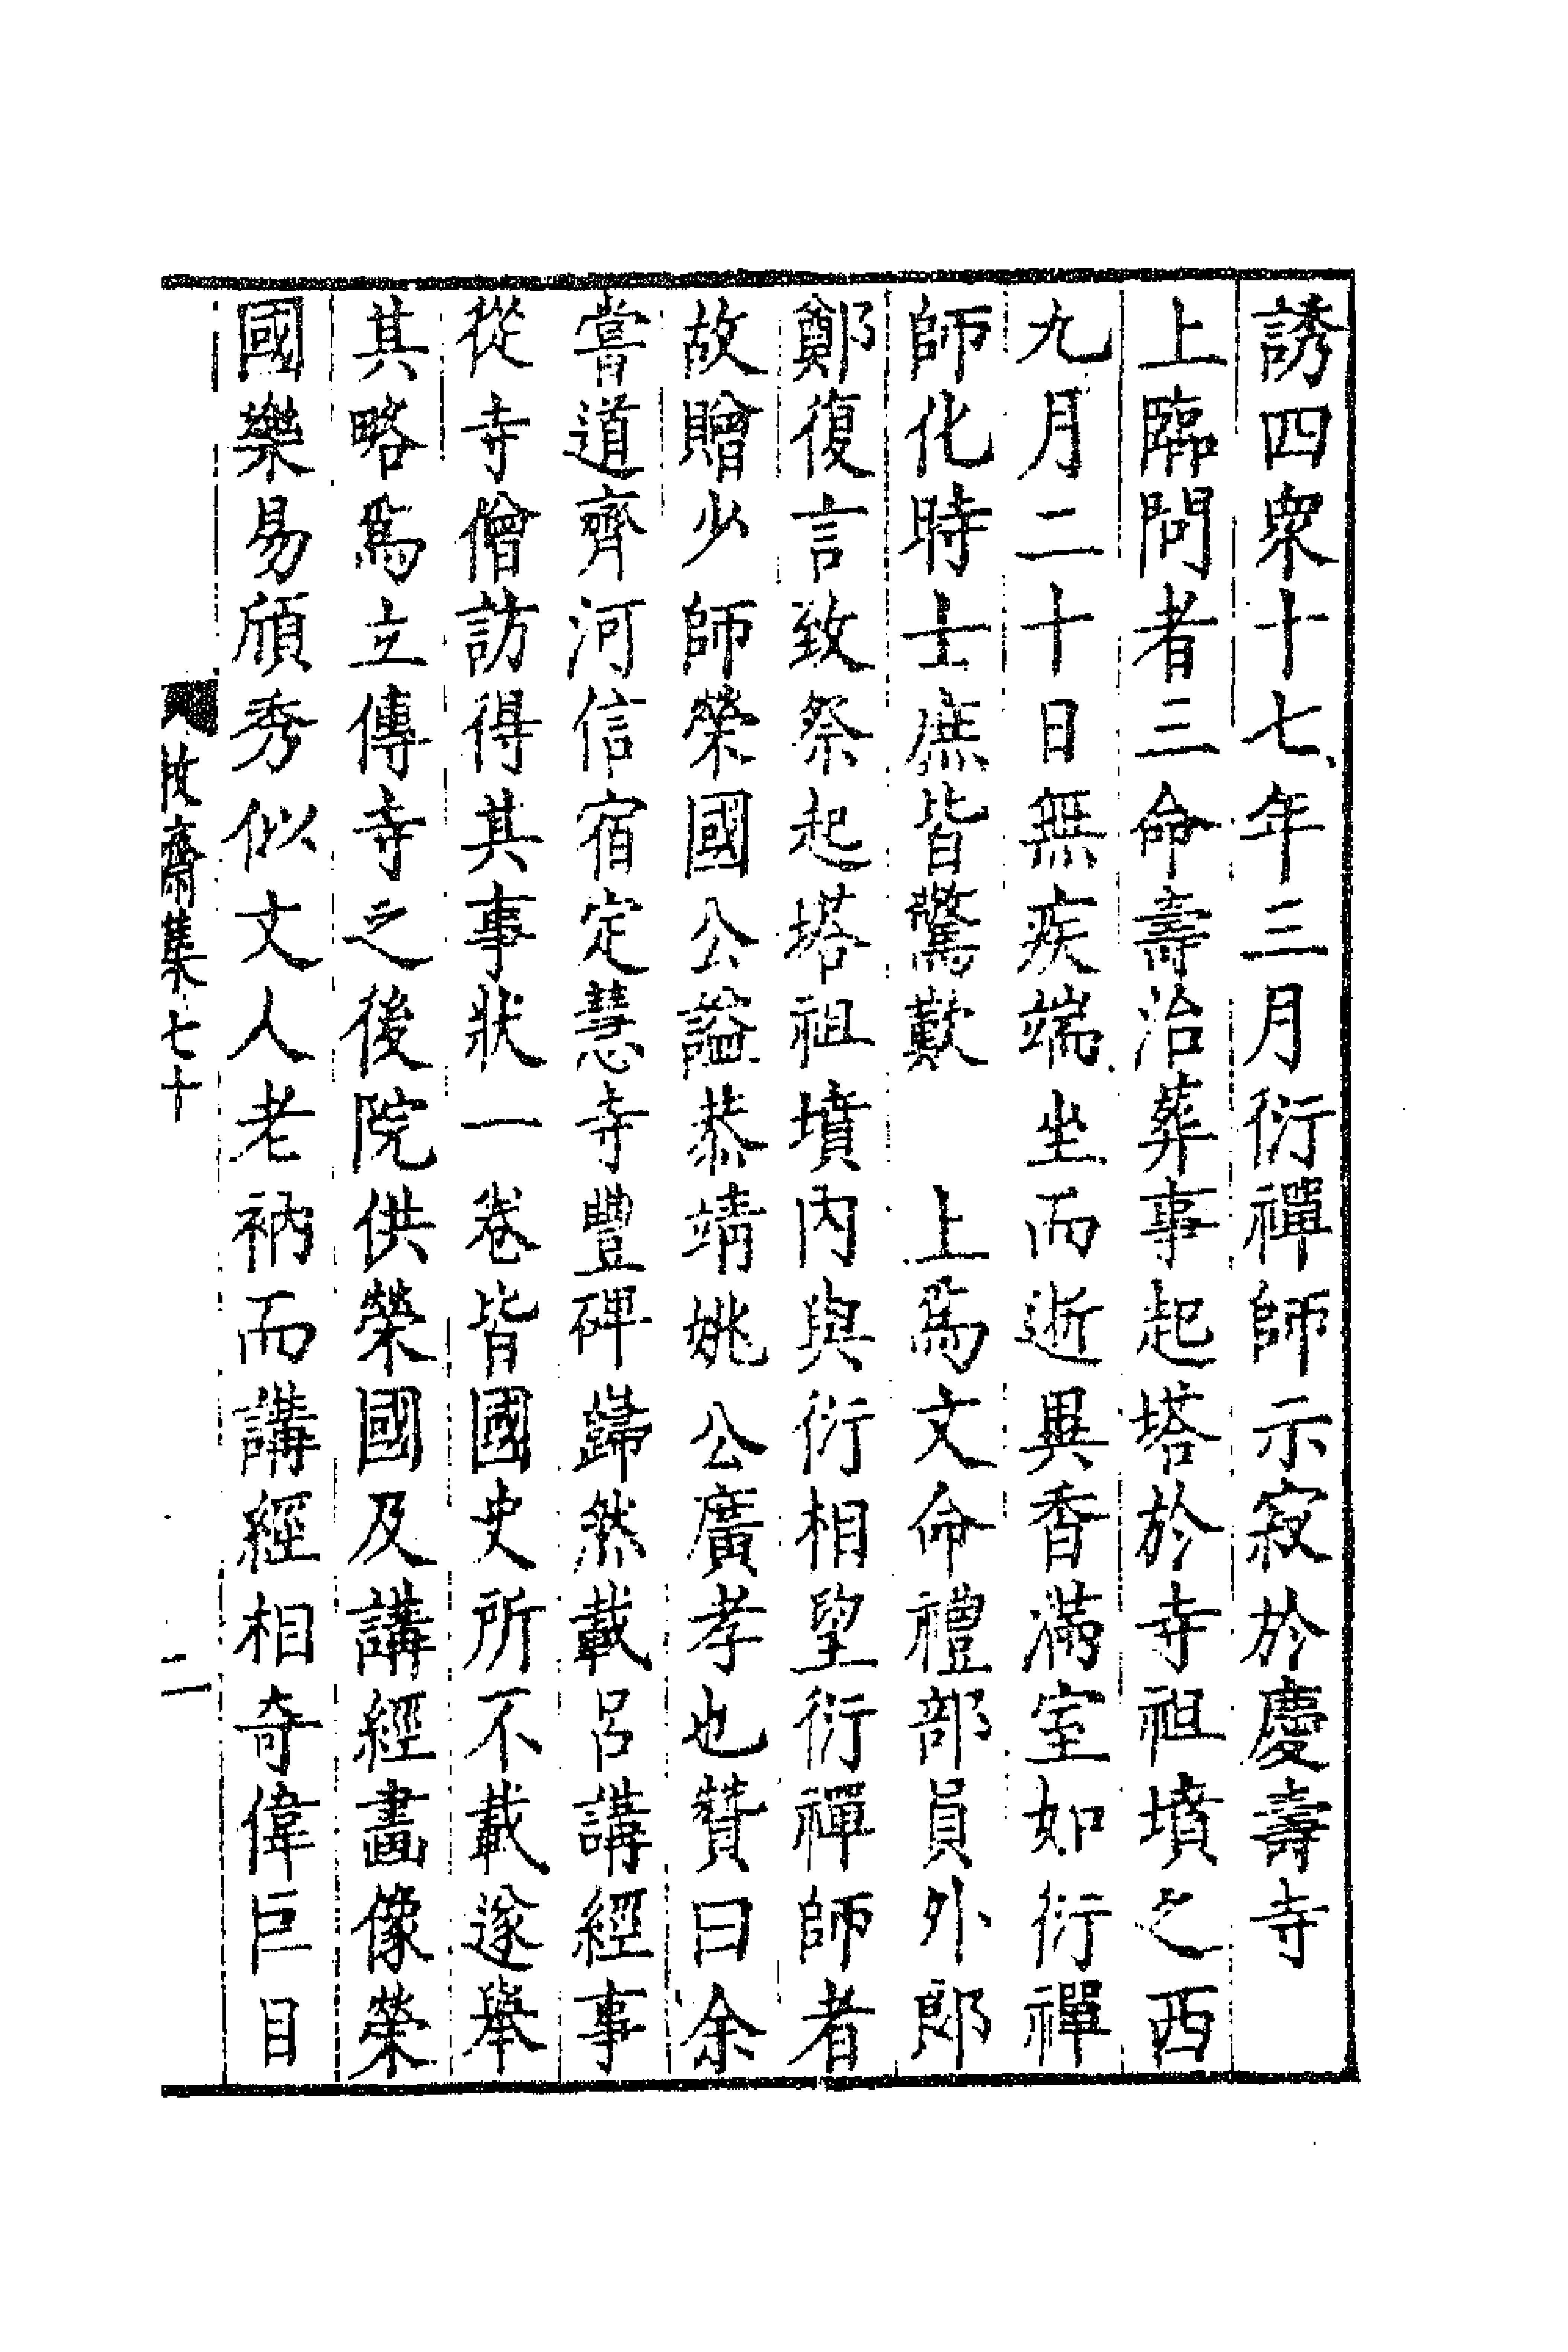 誘四衆十七年三月衍禪師示寂於慶壽寺
上臨問者三命壽治葬事起塔於寺祖墳之西
九月二十日無疾端坐而逝異香滿室如衍禪
師化時士庶皆驚歎　上爲文命禮部員外郎
鄭復言致祭起塔祖墳內與衍相望衍禪師者
故贈少師榮國公謚恭靖姚公廣孝也贊曰余
嘗道齊河信宿定慧寺豐碑巋然載呂講經事
從寺僧訪得其事狀一卷皆國史所不載遂舉
其略爲立傳寺之後院供榮國及講經畫像榮
國樂易頎秀似文人老衲而講經相奇偉巨目
攸齋集七十
二